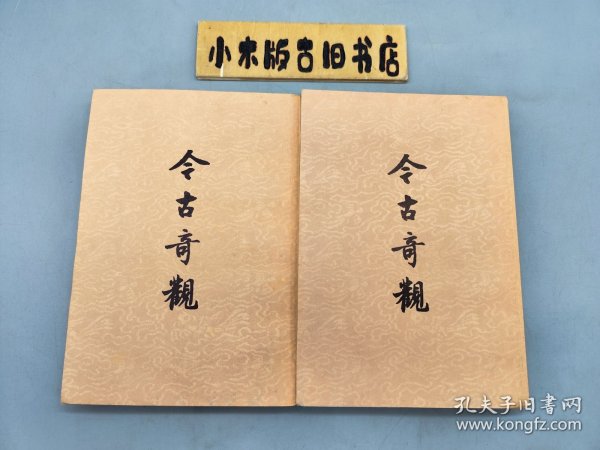 小木版古旧书店
今古奇觀
今古奇觀
孔夫子旧書网
www.kongfz.com